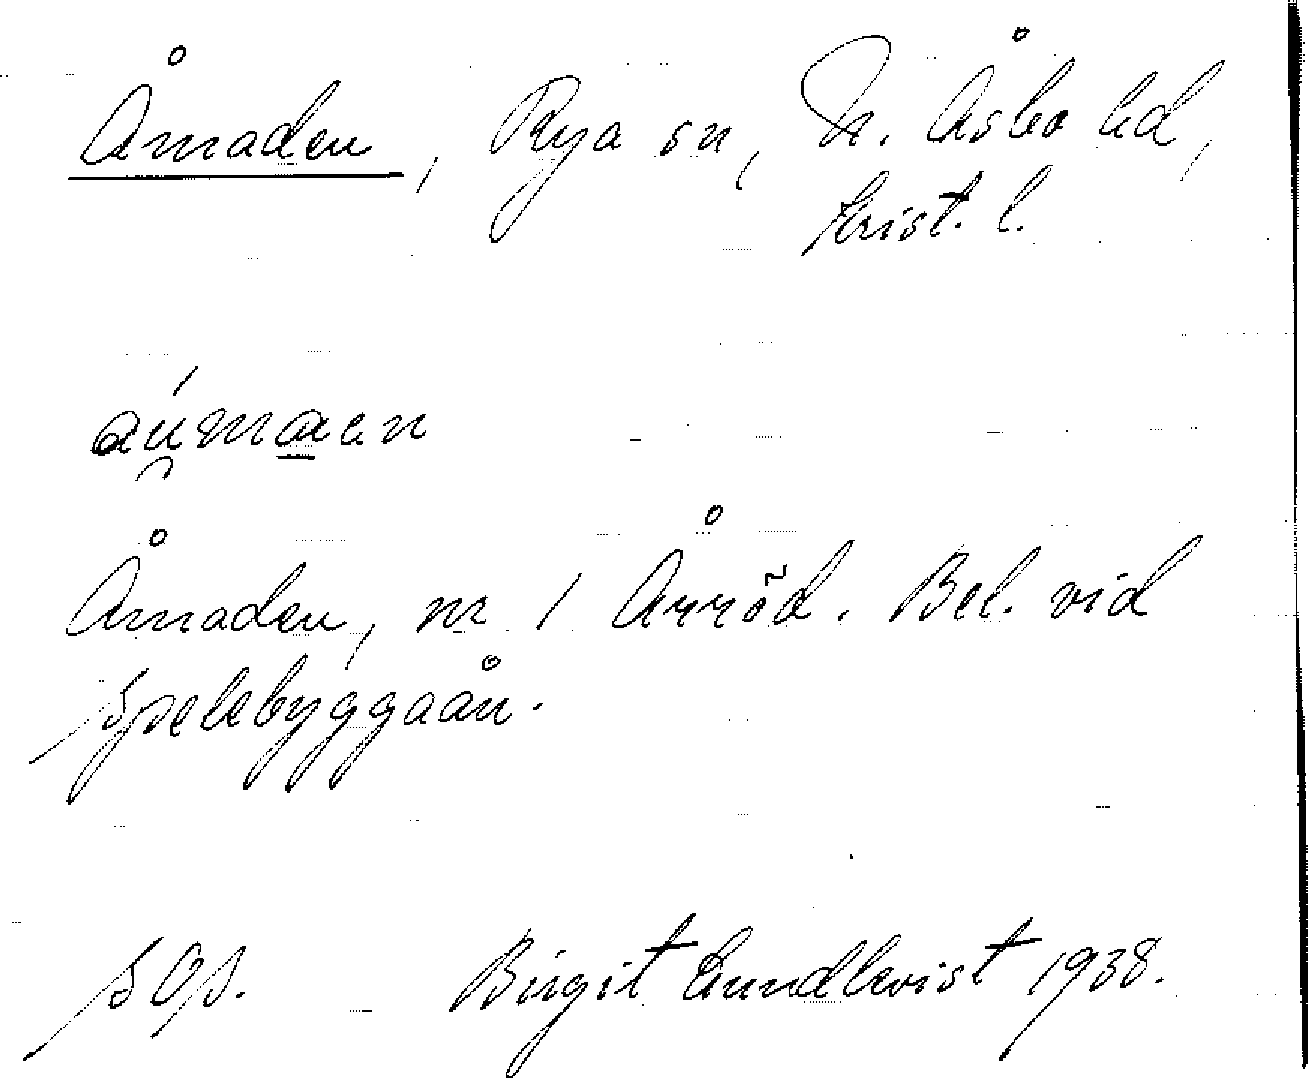 Åmaden, Rya sn, N. Åsbo hd,
Krist. l.
áu̯ma̲en
Åmaden, nr 1 Årröd. Bel. vid
Spelebyggaån.
Birgit Lundkvist 1938.